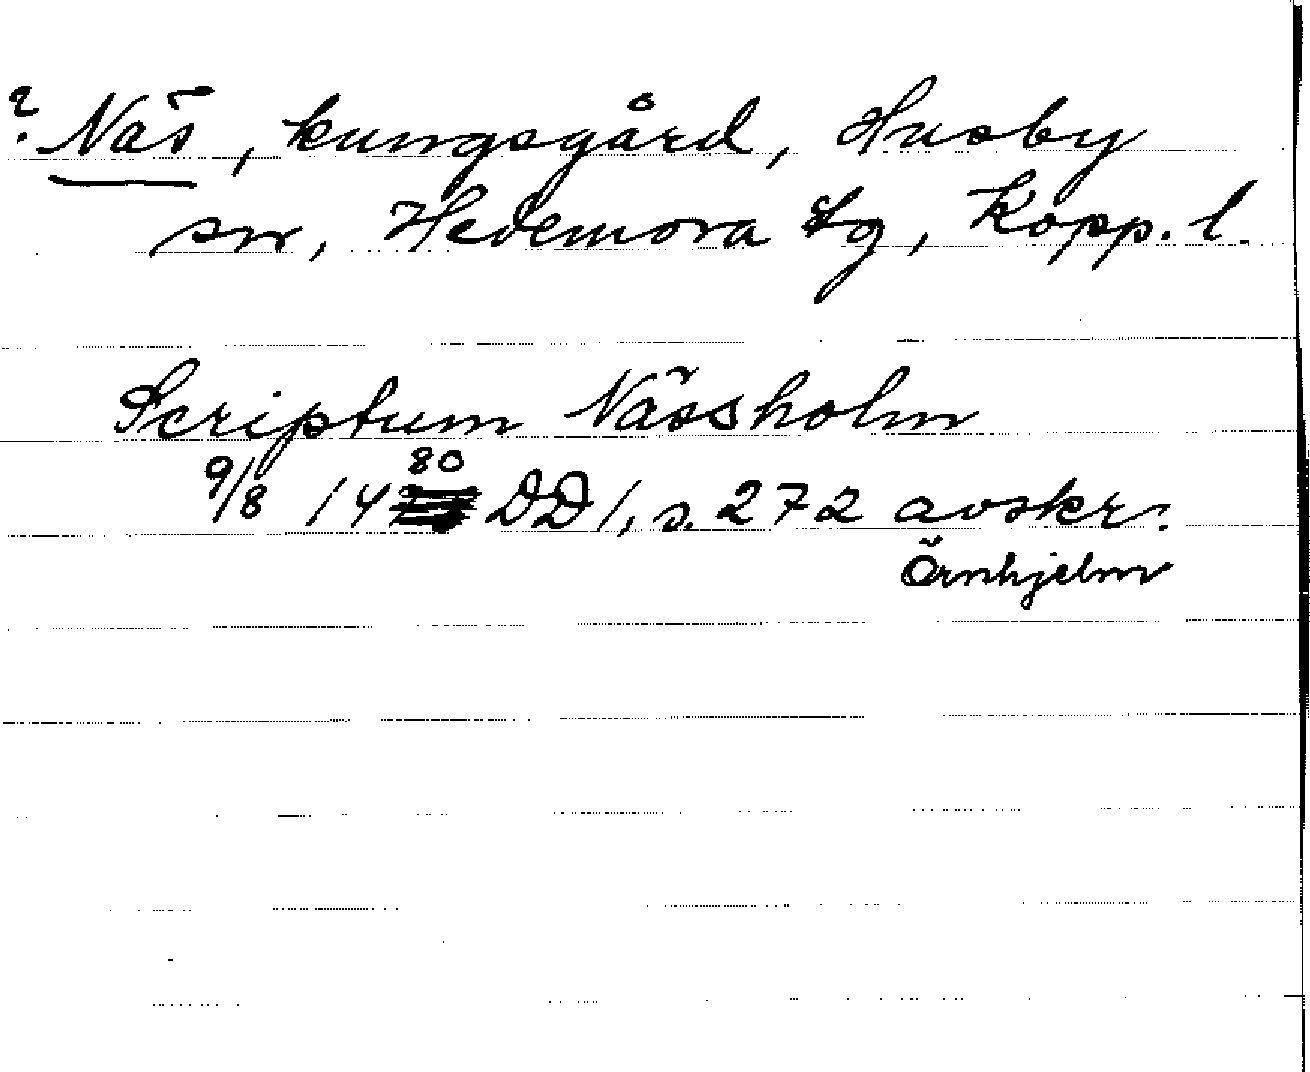 ? Näs, kungsgård, Husby
sn, Hedemora tg, Kopp. l.
Scriptum Nässholm
9/8 1480 DD 1, s. 272 avskr.
Örnhjelm